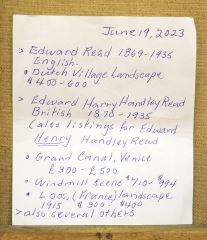 June 19, 2023
> Edward Read 1869-1935
English.
• Dutch Village Landscape
$400-600
> Edward Harry Handley Read
British 1870-1935
(also listings for Edward
Henry Handley Read
• Grand Canal, Venice
£300-£500
• Windmill Scene $710-$994
• Loos, (France) landscape
1915 $300-$400
> also several others